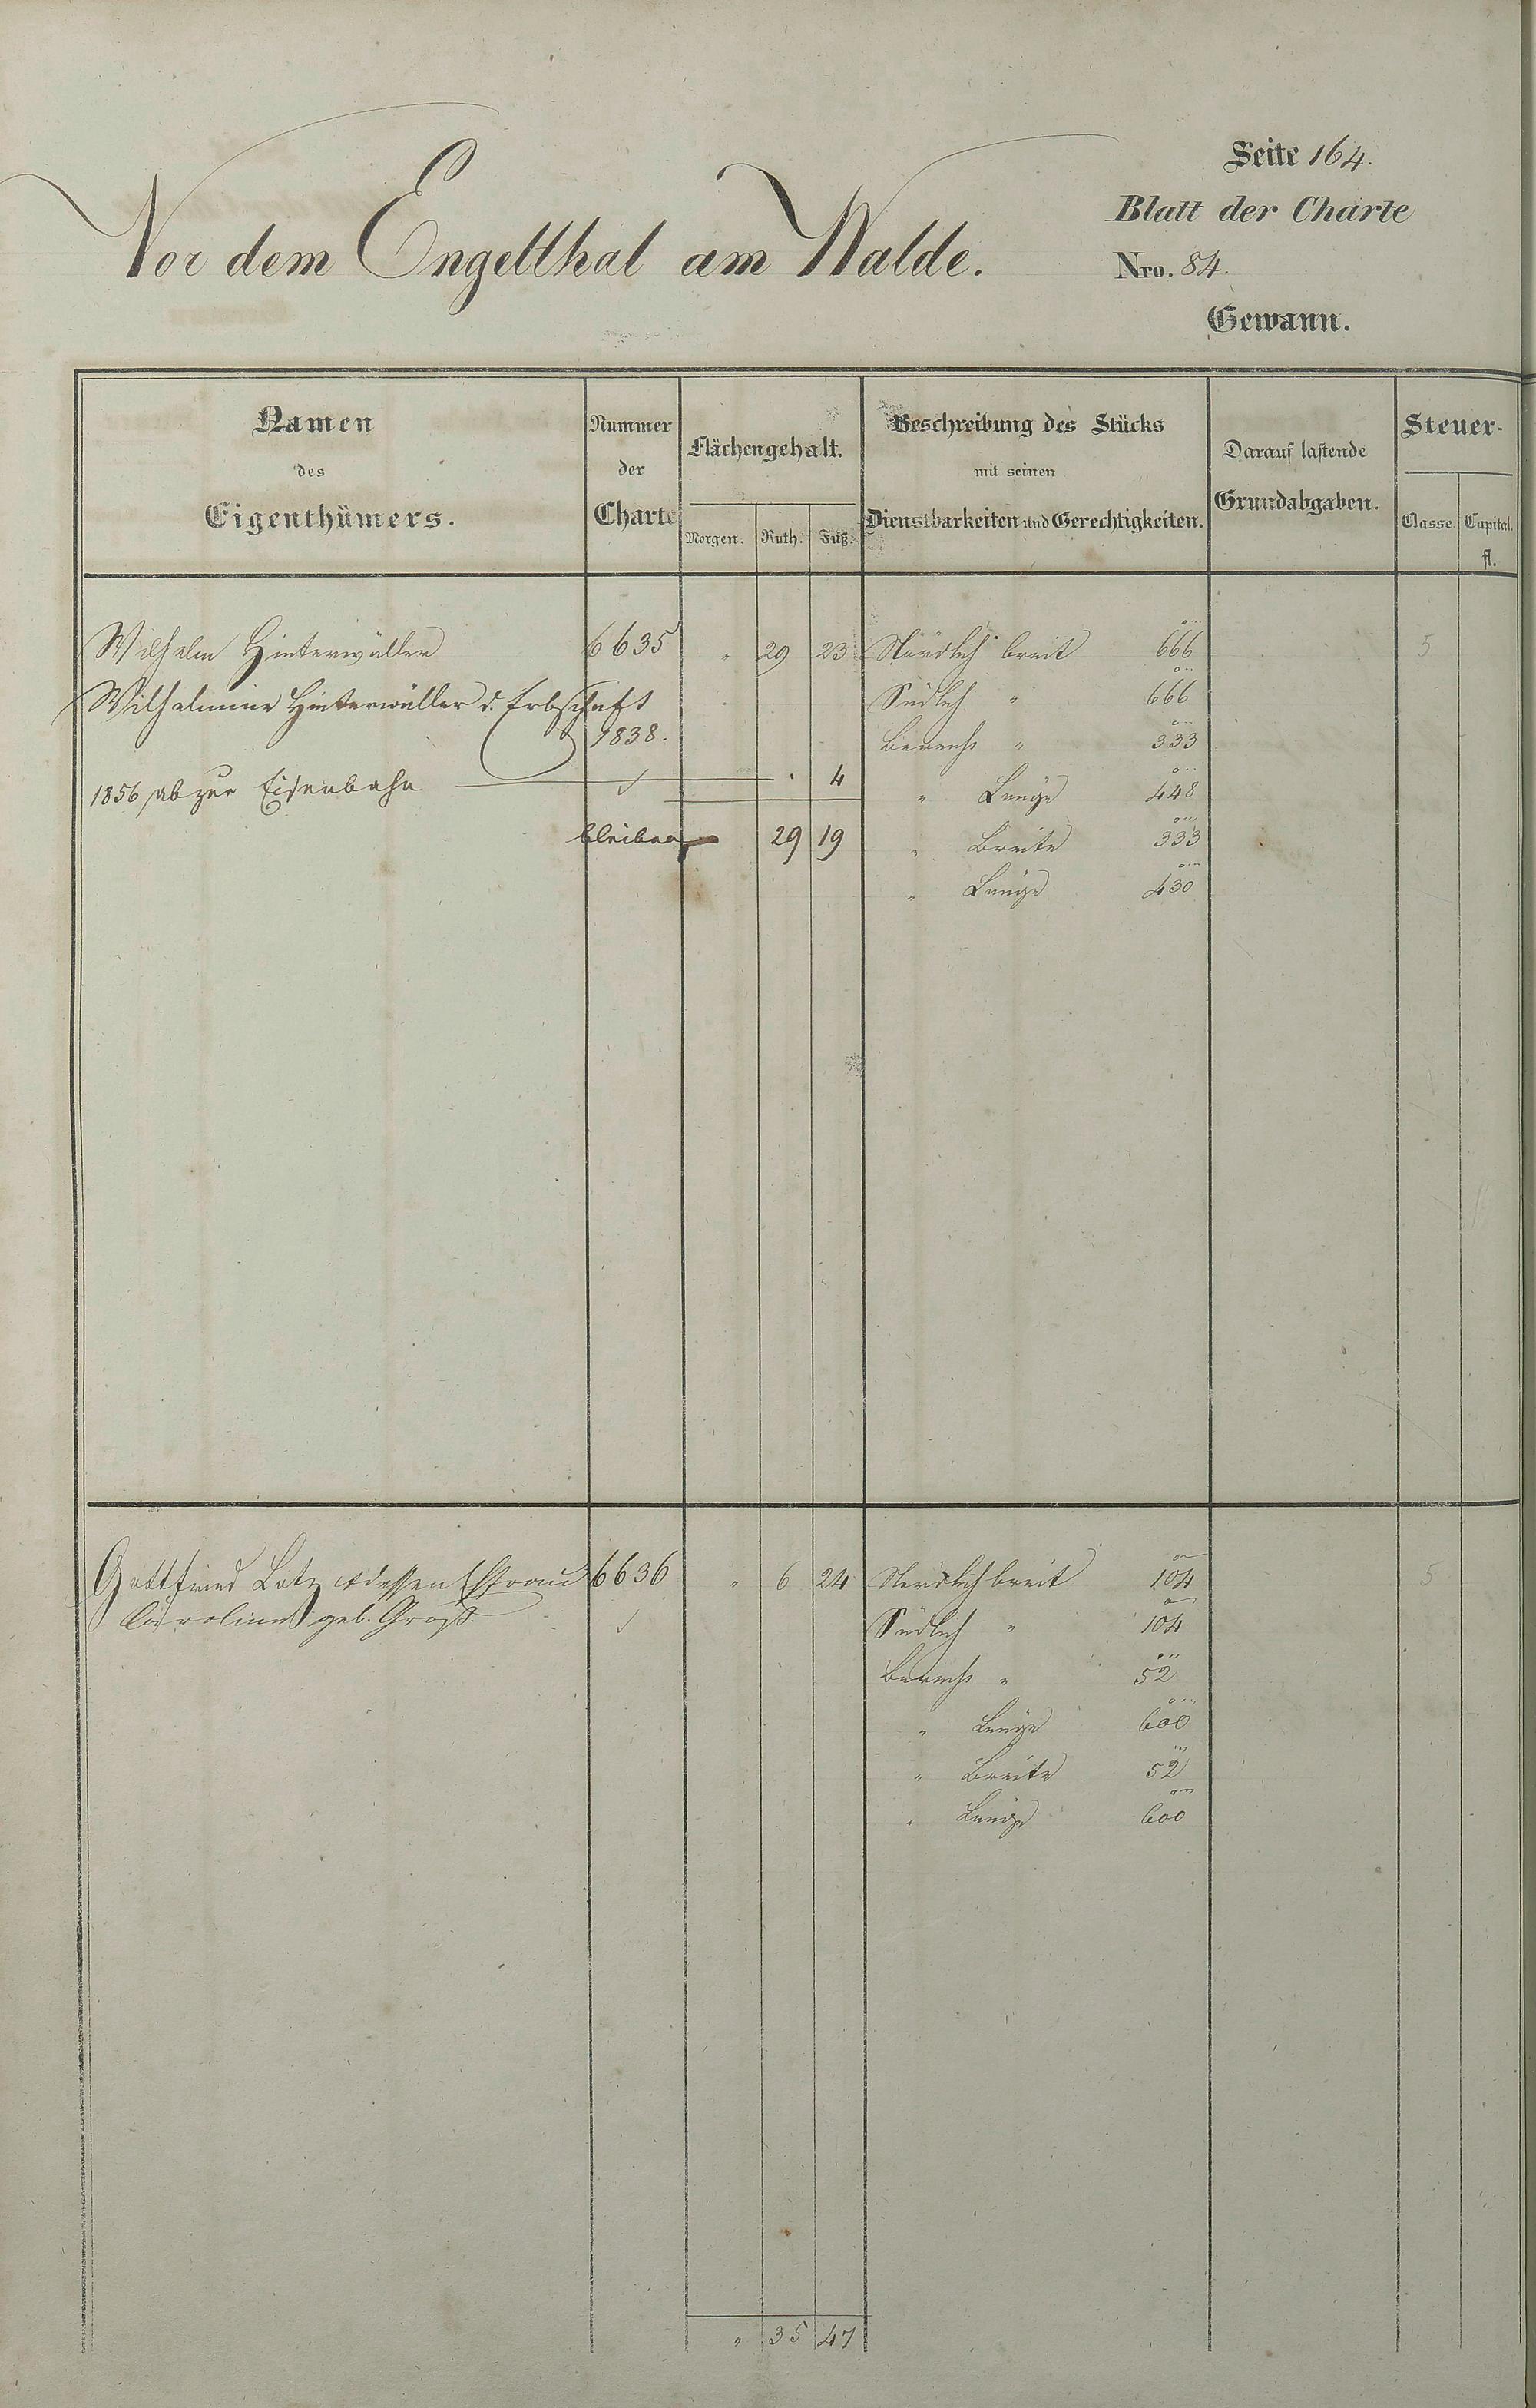 Seite 164.
Blatt der Charte
Vor dem Engelthal am Walde.
Nro. 84.
Gewann.
Namen des Eigenthümers.
Nummer der Charte
Flächengehalt.
Morgen. Ruth. Fuß.
Beschreibung des Stücks mit seinen Dienstbarkeiten und Gerechtigkeiten.
Darauf lastende Grundabgaben.
Steuer-
Classe. Capital. fl.
Wilhelm Hinterwäller 6635 " 29 23 Nördlich breit 666 5
Wilhelmine Hinterwäller d. Erbschaft Südlich " 666
1838. Berechs " 333
1856 ab zur Eisenbahn . 4 " Länge 448
bleiben 29 19 " Breite 333
" Länge 430
Gottfried Lotz & dessen Ehfrau 6636 " 6 24 Nördlich breit 104 5
Caroline geb. Groß Südlich " 104
Berechs " 52
" Länge 600
" Breite 52
" Länge 600
" 35 47